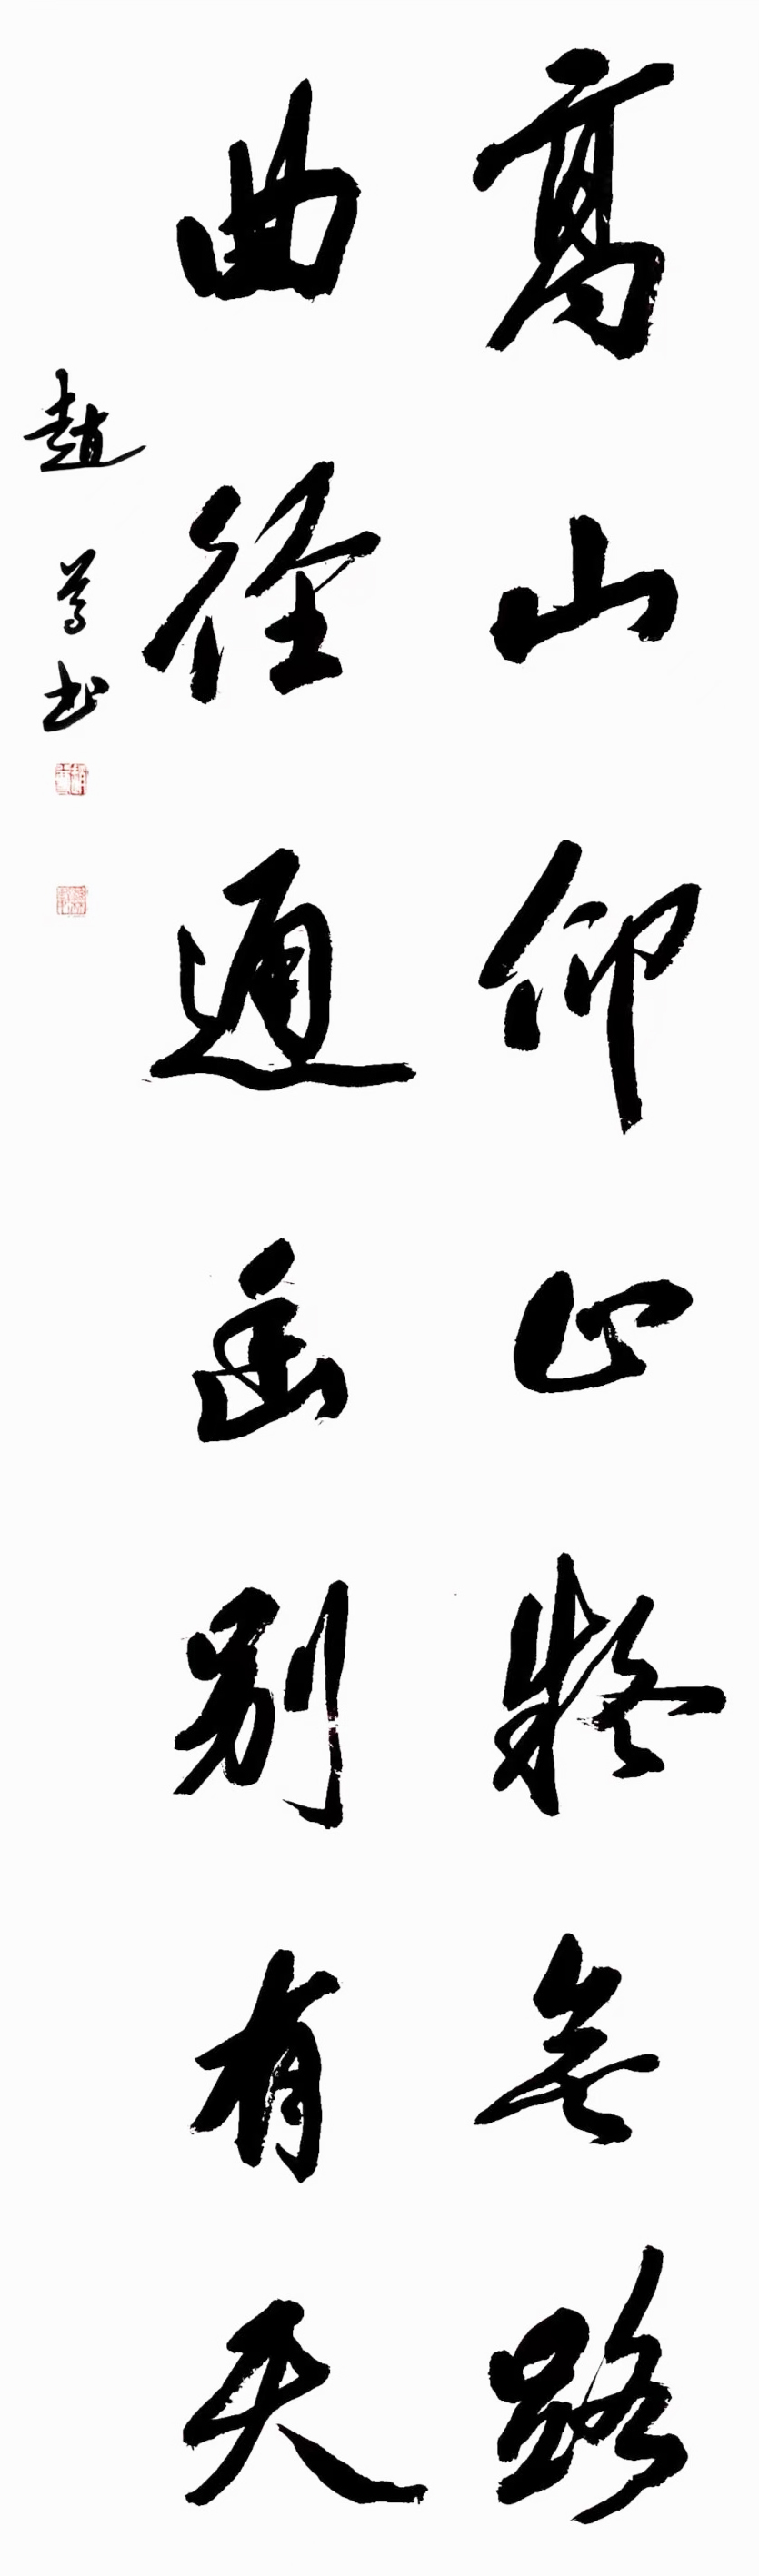 高山仰止疑無路
曲徑通幽別有天
趙 書